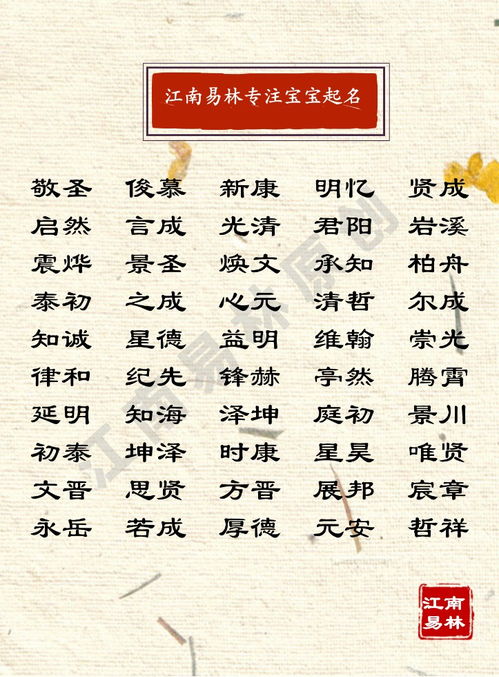 江南易林专注宝宝起名
敬圣 俊慕 新康 明忆 贤成
启然 言成 光清 君阳 岩溪
震烨 景圣 焕文 承知 柏舟
泰初 之成 心元 清哲 尔成
知诚 星德 益明 维翰 崇光
律和 纪先 锋赫 亭然 腾霄
延明 知海 泽坤 庭初 景川
初泰 坤泽 时康 星昊 唯贤
文晋 思贤 方晋 展邦 宸章
永岳 若成 厚德 元安 哲祥
江南易林原创
江南
易林